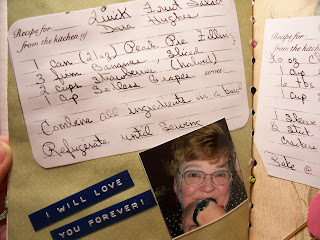 Recipe for Quick Fruit Salad
from the kitchen of Dara Hughes
1 can (21 oz) Peach Pie Filling
3 firm Bananas, Sliced
2 cups Strawberries (halved)
serves
1 cup Seedless Grapes
Combine all ingredients in a bowl
Refrigerate until Serving
I WILL LOVE
YOU FOREVER!
Recipe for
from the kitchen
1 Cup
1 Cup
2 Stick
Bake @